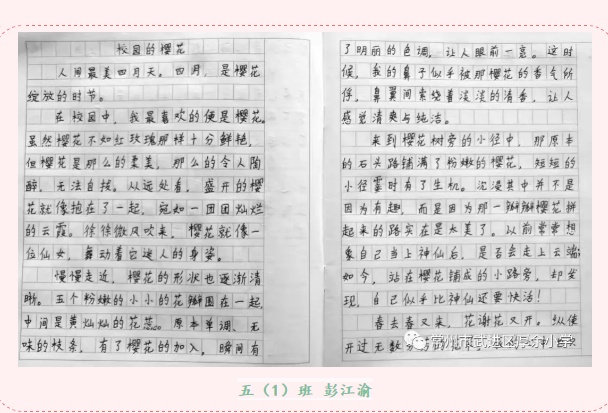 校园的樱花
人间最美四月天。四月，是樱花
绽放的时节。
在校园中，我最喜欢的便是樱花。
虽然樱花不如红玫瑰那样十分鲜艳，
但樱花是那么的柔美，那么的令人陶
醉，无法自拔。从远处看，盛开的樱
花就像抱在了一起，宛如一团团灿烂
的云霞。徐徐微风吹来，樱花就像一
位仙女，舞动着它迷人的身姿。
慢慢走近，樱花的形状也逐渐清
晰。五个粉嫩的小小的花瓣围在一起，
中间是黄灿灿的花蕊。原本单调、无
味的枝条，有了樱花的加入，瞬间有
了明丽的色调，让人眼前一亮。这时
候，我的鼻子似乎被那樱花的香气所
俘，鼻翼间萦绕着淡淡的清香，让人
感觉清爽与纯洁。
来到樱花树旁的小径中，那原本
的石头路铺满了粉嫩的樱花，短短的
小径霎时有了生机。沉浸其中并不是
因为有趣，而是因为那一瓣瓣樱花拼
起来的路实在是太美了。以前常常想
象自己当上神仙后，是否会走上云端；
如今，站在樱花铺成的小路旁，却发
现，自己似乎比神仙还要快活！
春去春又来，花谢花又开。纵使
开过无数
常州市武进区厚余小学
五（1）班 彭江渝